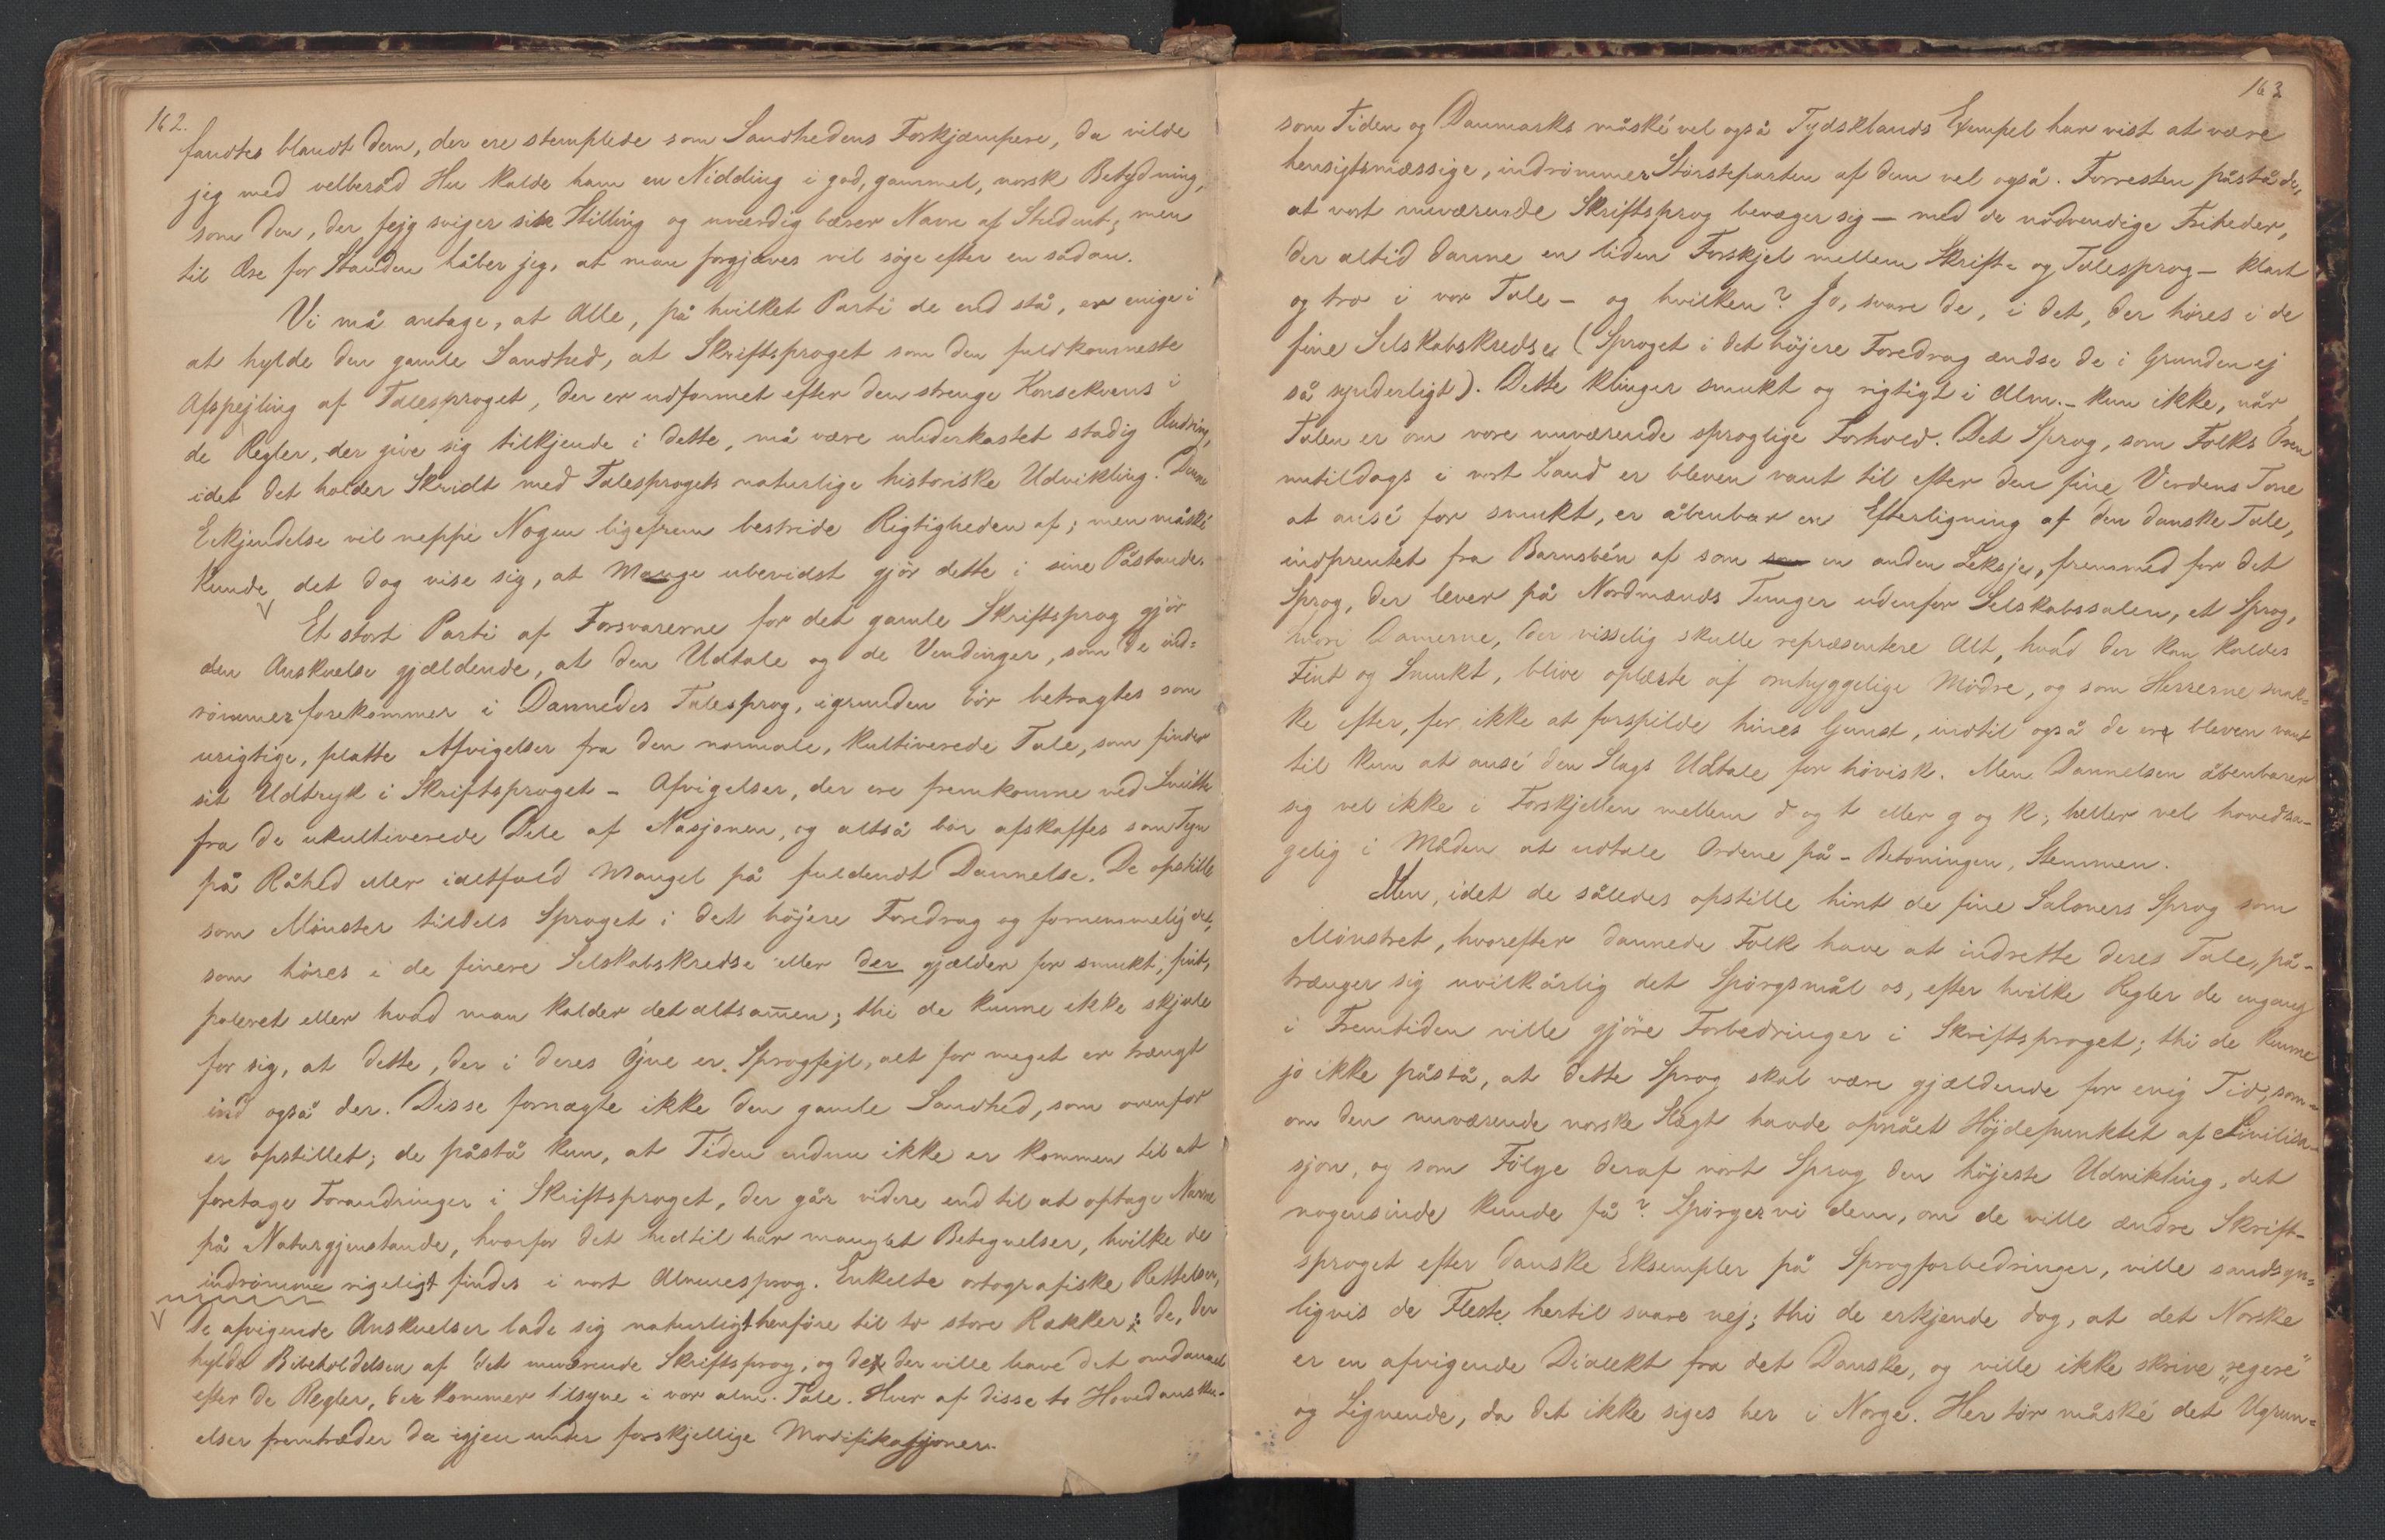 162.
fandtes blandt dem, der ere stemplede som Sandhedens Forkjæmpere, da vilde
jeg med velberåd Hu kalde ham en Nidding i god, gammel, norsk Betydning,
som den, der fejg sviger sin Stilling og uværdig bærer Navn af Student; men
til Ære for Standen håber jeg, at man forgjæves vil søge efter en sådan.
Vi må antage, at Alle, på hvilket Parti de end stå, er enige i
at hylde den gamle Sandhed, at Skriftsproget som den fuldkomneste
Afspejling af Talesproget, der er udformet efter den strenge Konsekvens i
de Regler, der give sig tilkjende i dette, må være underkastet stadig Ændring,
idet det holder Skridt med Talesprogets naturlige historiske Udvikling. Denne
Erkjendelse vil neppe Nogen ligefrem bestride Rigtigheden af; men måské
kunde det dog vise sig, at Mange ubevidst gjör dette i sine Påstande.
V
Et stort Parti af Forsvarerne for det gamle Skriftsprog gjör
den Anskuelse gjældende, at den Udtale og de Vendinger, som de ind-
rømmer forekommer i Dannedes Talesprog, igrunden bör betragtes som
urigtige, platte Afvigelser fra den normale, kultiverede Tale, som finder
sit Udtryk i Skriftsproget - Afvigelser, der ere fremkomne ved Smitte
fra de ukultiverede Dele af Nasjonen, og altså bör afskaffes som Tegn
på Råhed eller ialtfald Mangel på fuldendt Dannelse. De opstille
som Mönster tildels Sproget i det höjere Foredrag og fornemmelig det,
som höres i de finere Selskabskredse eller der gjælder for smukt, fint,
poleret eller hvad man kalder det altsammen; thi de kunne ikke skjule
for sig, at dette, der i deres Öjne er Sprogfejl, alt for meget er trængt
ind også der. Disse fornægte ikke den gamle Sandhed, som ovenfor
er opstillet; de påstå kun, at Tiden endnu ikke er kommen til at
foretage Forandringer i Skriftsproget, der går videre end til at optage Navne
på Naturgjenstande, hvorfor det hidtil har manglet Betegnelser, hvilke de
indrömme rigeligt findes i vort Almuesprog. Enkelte ortografiske Rettelser,
V De afvigende Anskuelser lade sig naturligt henföre til to store Rækker: de, der
hylde Bibeholdelsen af det nuværende Skriftsprog, og de, der ville have det omdannet
efter de Regler, der kommer tilsyne i vor alm. Tale. Hver af disse to Hovedansku-
elser fremtræder da igjen under forskjellige Modifikasjoner.
163
som Tiden og Danmarks måské vel også Tydsklands Exempel har vist at være
hensigtsmæssige, indrömmer Störsteparten af dem vel også. Forresten påstå de,
at vort nuværende Skriftsprog bevæger sig - med de nödvendige Friheder,
der altid danne en liden Forskjel mellem Skrift- og Talesprog - klart
og tro i vor Tale - og hvilken? Jo, svare de, i det, der höres i de
fine Selskabskredse (Sproget i det höjere Foredrag ændse de i Grunden ej
så synderligt). Dette klinger smukt og rigtigt i Alm. - kun ikke, når
Talen er om vore nuværende sproglige Forhold. Det Sprog, som Folks Øren
nutildags i vort Land er bleven vant til efter den fine Verdens Tone
at ansé for smukt, er åbenbar en Efterligning af den danske Tale,
indprentet fra Barnsbén af som en anden Leksje, fremmed for det
Sprog, der lever på Nordmænds Tunger udenfor Selskabssalen, et Sprog,
hvori Damerne, der visselig skulle repræsentere Alt, hvad der kan kaldes
Fint og Smukt, blive oplærte af omhyggelige Mödre, og som Herrerne snak-
ke efter, for ikke at forspilde hines Gunst, indtil også de ere bleven vant
til kun at ansé den Slags Udtale for hövisk. Men Dannelsen åbenbarer
sig vel ikke i Forskjellen mellem d og t eller g og k; heller vel hovedsa-
gelig i Måden at udtale Ordene på - Betoningen, Stemmen.
Men, idet de således opstille hint de fine Saloners Sprog som
Mönstret, hvorefter dannede Folk have at indrette deres Tale, på-
trænger sig uvilkårlig det Spörgsmål os, efter hvilke Regler de engang
i Fremtiden ville gjöre Forbedringer i Skriftsproget; thi de kunne
jo ikke påstå, at dette Sprog skal være gjældende for evig Tid, som-
om den nuværende norske Slægt havde opnået Höjdepunktet af Civilisa-
sjon, og som Fölge deraf vort Sprog den höjeste Udvikling, det
nogensinde kunde få? Spörger vi dem, om de ville ændre Skrift-
sproget efter danske Eksempler på Sprogforbedringer, ville sandsyn-
ligvis de Fleste hertil svare nej; thi de erkjende dog, at det Norske
er en afvigende Dialekt fra det Danske, og ville ikke skrive "regere"
og Lignende, da det ikke siges her i Norge. Her tör måské det Ugrun-